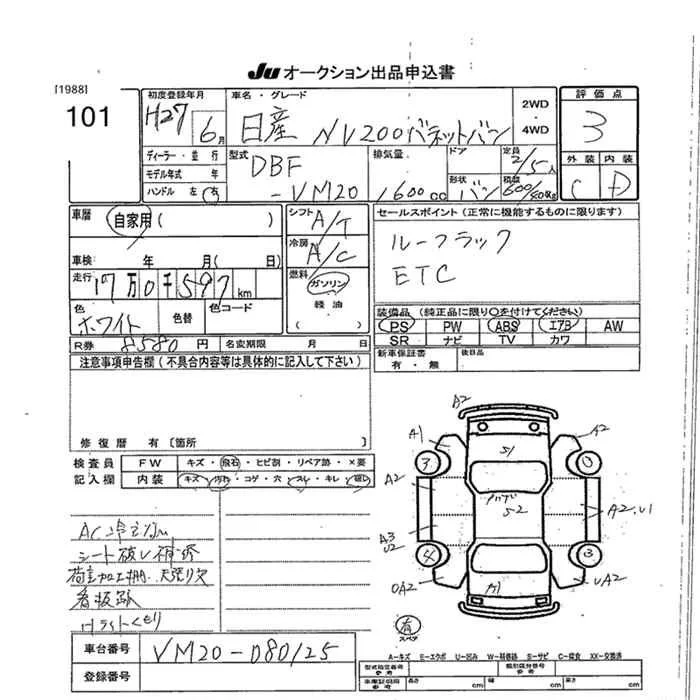 Ju オークション出品申込書
[1988]
101
初度登録年月
H27 6月
車名・グレード
日産 NV200バネットバン
2WD
・
4WD
評価点
3
外装 内装
C D
ディーラー・並行
モデル年式 年
ハンドル 左 右
型式
DBF
-VM20
排気量
1600cc
ドア
定員
2/5人
形状
バン
積載
600/ kg
車歴
自家用( )
車検 年 月( 日)
走行
17万0千597km
色
ホワイト
色替
色コード
シフト
A/T
冷房
A/C
燃料
ガソリン
軽油
R券 8580円
名変期限 月 日
セールスポイント(正常に機能するものに限ります)
ルーフラック
ETC
装備品(純正品に限り○を付けてください)
PS PW ABS エアB AW
SR ナビ TV カワ
新車保証書
有・無
後日品
注意事項申告欄(不具合内容等は具体的に記入して下さい)
修復歴 有〔箇所 〕
検査員
記入欄
FW
キズ・飛石・ヒビ割・リペア跡・×要
内装
キズ・汚れ・コゲ・穴・スレ・キレ・破レ
シート破レ補修
看板跡
Hライトくもり
車台番号
VM20-080125
登録番号
A2
A1
A2
3
S1
A2
S2
A2.U1
A3
U2
4
3
UA2
有
スペタ
A-キズ E-エクボ U-凹み W-補修跡 S-サビ C-腐食 XX-交換済
型式指定番号
類別区分番号
車庫証明用
参考
長さ cm
幅 cm
高さ cm